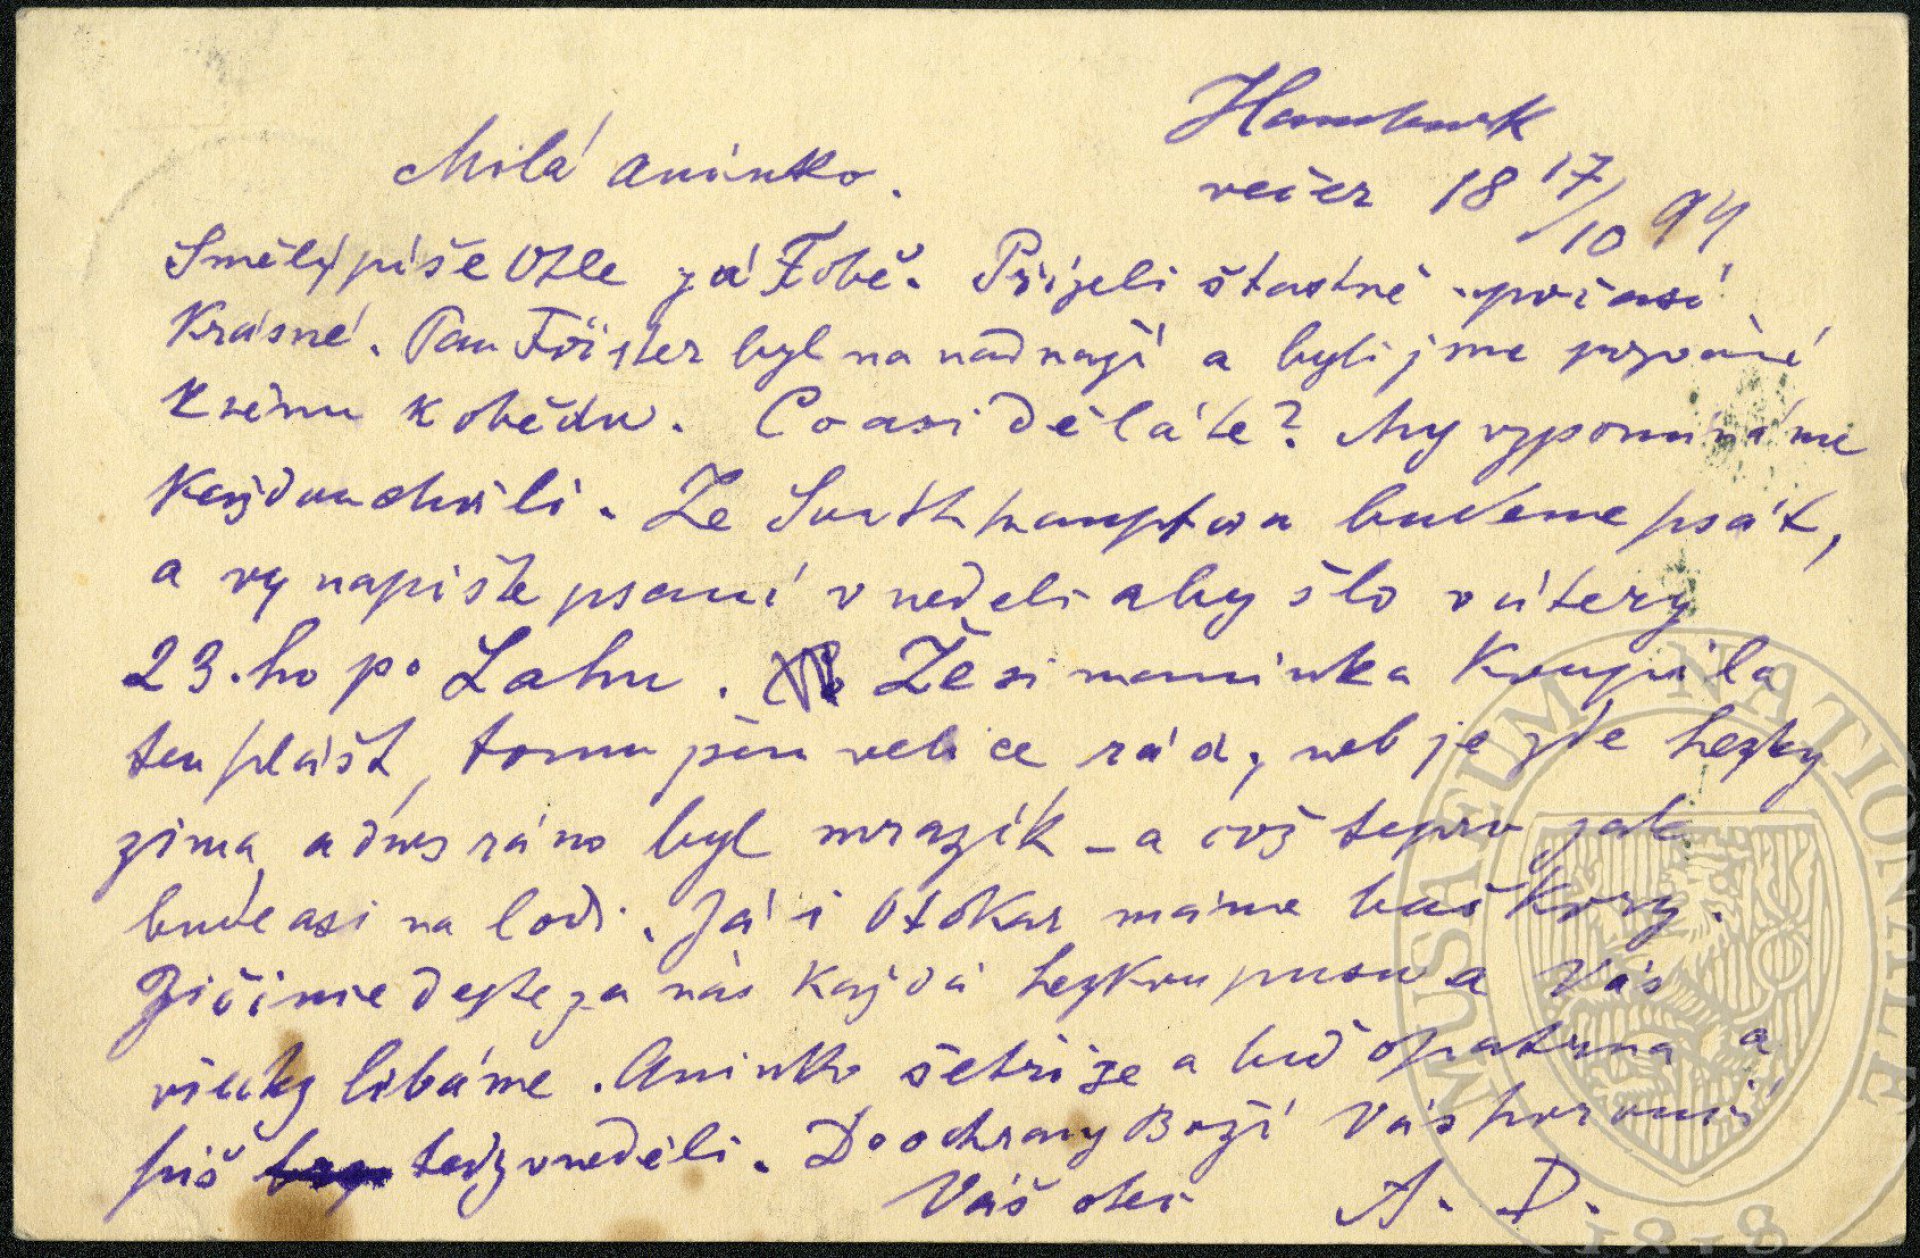 Hamburk
Milá Aninko.
večer 18 17/10 94
Smělý píše Otle já Tobě. Přijeli štastně počasí
krásné. Pan Förster byl na nádraží a byli jsme pozváni
k němu k obědu. Co asi děláte? My vzpomínáme
každou chvíli. Ze Southhamptonu budeme psát,
a vy napište psaní v neděli aby šlo v úterý
23.ho po Lahn. Že si maminka koupila
ten plášt, tomu jsem velice rád, neb je zde hezky
zima, a dnes ráno byl mrazík – a což teprv jak
bude asi na lodi. Já i Otakar máme baškory.
Zičíme dejte za nás každá hezkou pusu a Vás
všecky líbáme. Aninko šetři se a bud opatrna a
piš tedy v neděli. Do ochrany Boží Vás poroučí
Váš otec A. D.
MUSAEUM NATIONALE
1818